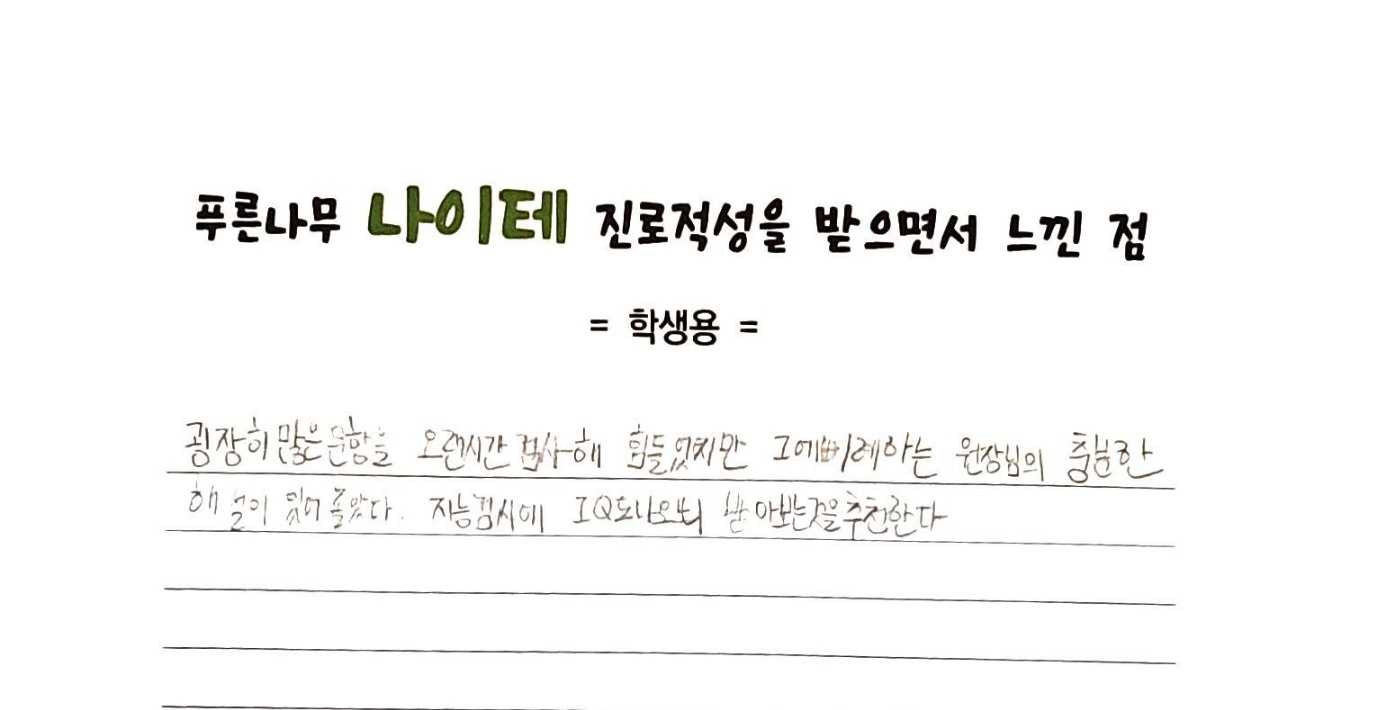 푸른나무 나이테 진로적성을 받으면서 느낀 점
= 학생용 =
굉장히 많은 문항을 오랜시간 검사해 힘들었지만 그에 원장님의 충분한
해설이 있어 좋았다. 지능검사에 IQ도 나오니 받아보는것을 추천한다